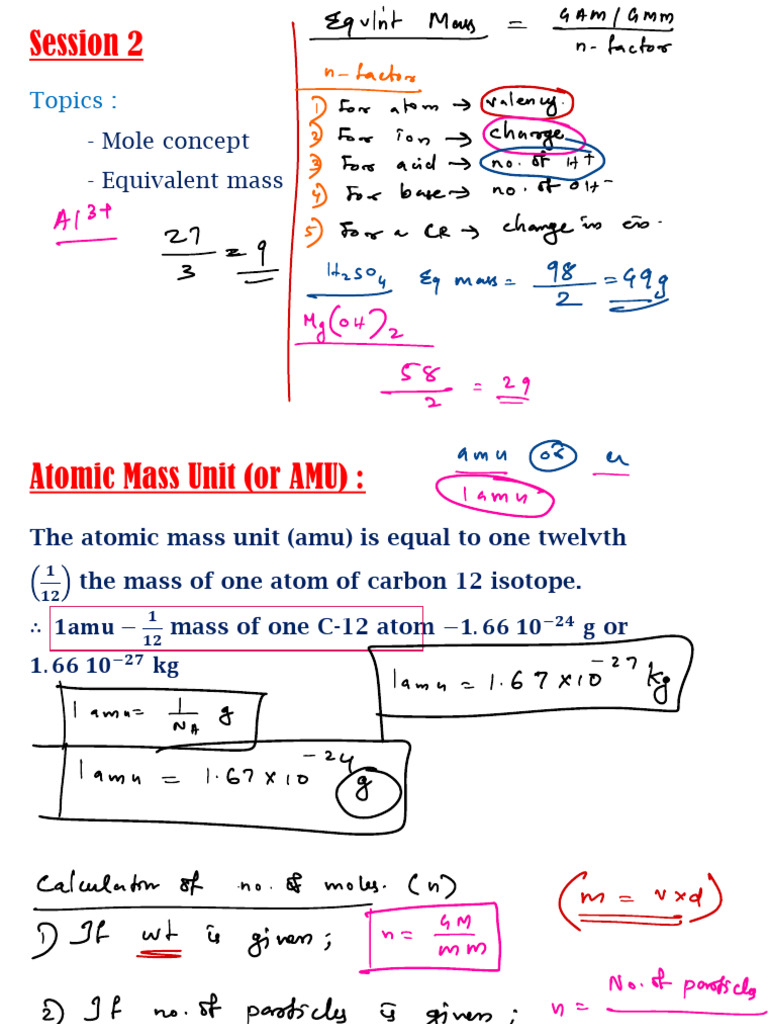 Session 2
Topics :
- Mole concept
- Equivalent mass
Al³⁺
27/3 = 9
Equlnt Mass = GAM/GMM / n-factor
n-factor
1) For atom → valency.
2) For ion → charge
3) For acid → no. of H⁺
4) For base → no. of OH⁻
5) For a CR → change in
H₂SO₄ Eq mass = 98/2 = 49g
Mg(OH)₂
58/2 = 29
amu or u
1 amu
Atomic Mass Unit (or AMU) :
The atomic mass unit (amu) is equal to one twelvth
(1/12) the mass of one atom of carbon 12 isotope.
∴ 1amu − 1/12 mass of one C-12 atom −1.66 10⁻²⁴ g or
1.66 10⁻²⁷ kg
1amu = 1.67×10⁻²⁷ kg
1 amu = 1/N_A g
1 amu = 1.67×10⁻²⁴ g
Calculation of no. of moles. (n)
(m = v×d)
1) If wt is given; n = GM/MM
2) If no. of particles is given; n = No. of particles